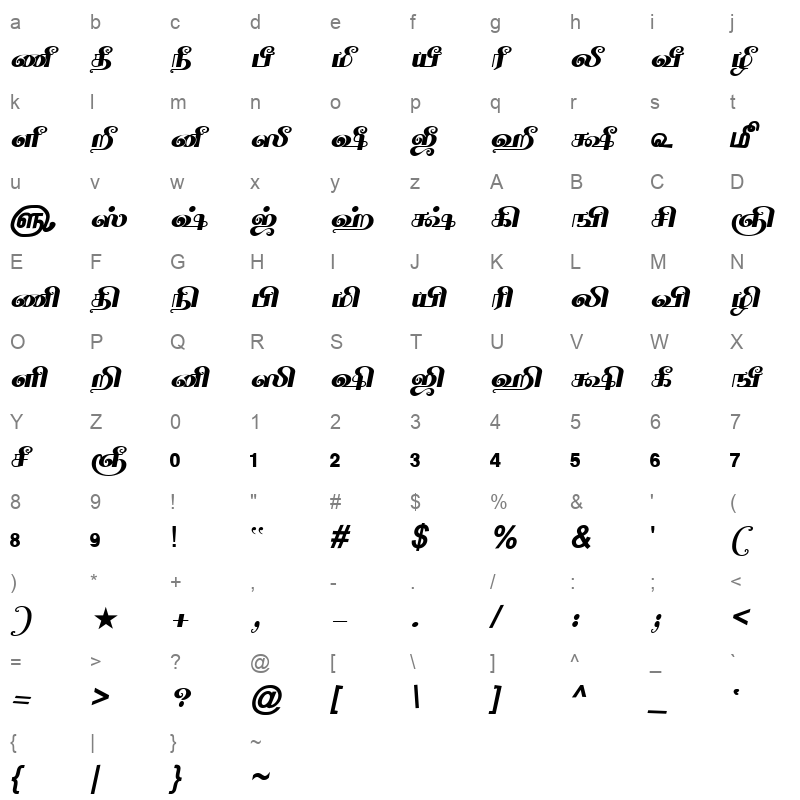 a b c d e f g h i j
ணீ தீ நீ பீ மீ யீ ரீ லீ வீ ழீ
k l m n o p q r s t
ளீ றீ னீ ஸீ ஷீ ஜீ ஹீ க்ஷீ
u v w x y z A B C D
ஸ் ஷ் ஜ் ஹ் க்ஷ் கி ஙி சி ஞி
E F G H I J K L M N
ணி தி நி பி மி யி ரி லி வி ழி
O P Q R S T U V W X
ளி றி னி ஸி ஷி ஜி ஹி க்ஷி கீ ஙீ
Y Z 0 1 2 3 4 5 6 7
சீ ஞீ 0 1 2 3 4 5 6 7
8 9 ! " # $ % & ' (
8 9 ! " # $ % & ' (
) * + , - . / : ; <
) ★ + , – . / : ; <
= > ? @ [ \ ] ^ _ `
= > ? @ [ \ ] ^ _ ‛
{ | } ~
{ | } ~